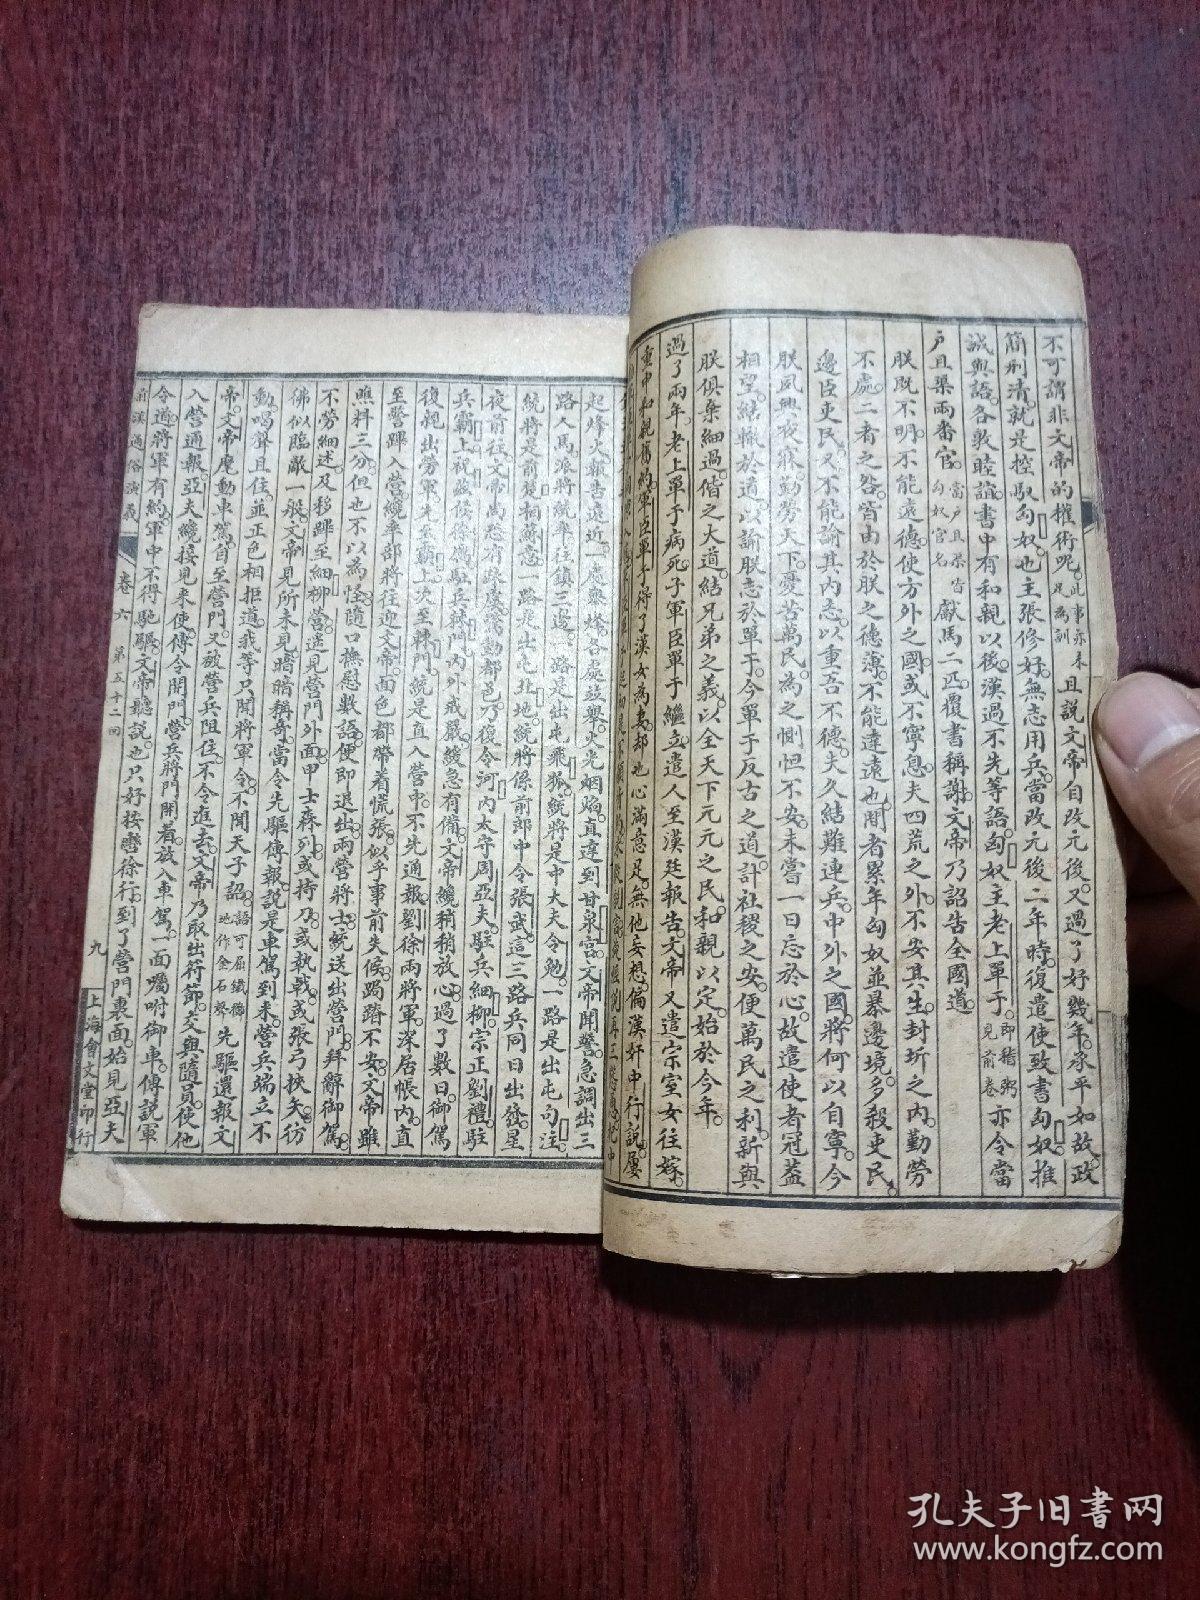 不可謂非文帝的權術呢此事亦未足為訓且說文帝自改元後又過了好幾年承平如故政
簡刑清就是控馭匈奴也主張修好無志用兵當改元後二年時復遣使致書匈奴推
誠與語各敦睦誼書中有和親以後漢過不先等語匈奴主老上單于即稽粥見前卷亦令當
户且渠兩番官當户且渠皆匈奴官名獻馬二匹覆書稱謝文帝乃詔告全國道
朕既不明不能遠德使方外之國或不寧息夫四荒之外不安其生封圻之內勤勞
不處二者之咎皆由於朕之德薄不能達遠也間者累年匈奴並暴邊境多殺吏民
邊臣吏民又不能諭其內志以重吾不德夫久結難連兵中外之國將何以自寧今
朕夙興夜寐勤勞天下憂苦萬民為之惻怛不安未嘗一日忘於心故遣使者冠蓋
相望結轍於道以諭朕志於單于今單于反古之道計社稷之安便萬民之利新與
朕俱棄細過偕之大道結兄弟之義以全天下元元之民和親以定始於今年
過了兩年老上單于病死子軍臣單于繼立遣人至漢廷報告文帝又遣宗室女往嫁
重申和親舊約軍臣單于得了漢女為妻却也心滿意足無他妄想偏漢奸中行說屢
起烽火報告遠近一處舉烽各處並舉火光烟焰直達到甘泉宮文帝聞警急調出三
路人馬派將統率往鎮三邊一路是出屯飛狐統將是中大夫令勉一路是出屯句注
統將是前楚相蘇意一路是出屯北地統將係前郎中令張武這三路兵同日出發星
夜前往文帝尚恐有疎虞驚動都邑乃復令河內太守周亞夫駐兵細柳宗正劉禮駐
兵霸上祝茲侯徐厲駐兵棘門內外戒嚴緩急有備文帝纔稍稍放心過了數日御駕
復親出勞軍先至霸上次至棘門統是直入營中不先通報劉徐兩將軍深居帳內直
至警蹕入營纔率部將往迎文帝面色都帶着慌張似乎事前失候跼蹐不安文帝雖
瞧料三分但也不以為怪隨口撫慰數語便即退出兩營將士統送出營門拜辭御駕
不勞細述及移蹕至細柳營遥見營門外面甲士森列或持刀或執戟或張弓挾矢彷
佛似臨敵一般文帝見所未見暗暗稱奇當令先驅傳報說是車駕到來營兵端立不
動喝聲且住並正色相拒道我等只聞將軍令不聞天子詔語可屈鐵膽地作金石聲先驅還報文
帝文帝麾動車駕自至營門又被營兵阻住不令進去文帝乃取出符節交與隨員使他
入營通報亞夫纔接見來使傳令開門營兵將門開着放入車駕一面囑咐御車傳說軍
令道將軍有約軍中不得馳驅文帝聽說也只好按轡徐行到了營門裏面始見亞夫
前漢通俗演義 卷六 第五十二回 九 上海會文堂印行
孔夫子旧書网
www.kongfz.com